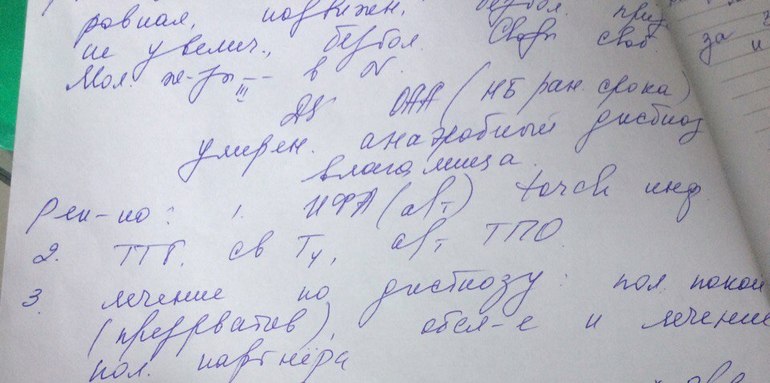 ровная, подвижен, безбол. прид.
не увелич., безбол. Своды своб. за
Мол. ж-зы III в N.
ДЗ ОАА (НБ ран. срока)
умерен. анаэробный дисбиоз
влагалища.
Рек-но: 1. ИФА (ат) torch инф.
2. ТТГ. св Т4, ат ТПО
3. лечение по дисбиозу: пол. покой
(презерватив), обсл-е и лечение
пол. партнёра